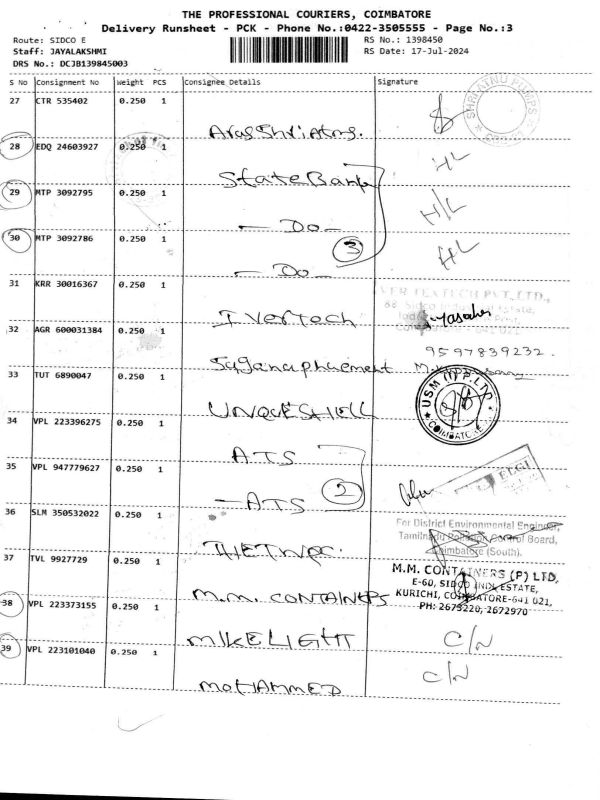 THE PROFESSIONAL COURIERS, COIMBATORE
Delivery Runsheet - PCK - Phone No.:0422-3505555 - Page No.:3
Route: SIDCO E RS No.: 1398450
Staff: JAYALAKSHMI RS Date: 17-Jul-2024
DRS No.: DCJB139845003
S No Consignment No Weight PCS Consignee Details Signature
27 CTR 535402 0.250 1
SHRI ATNU PUMPS
28 EDQ 24603927 0.250 1
State Bank H/L
29 MTP 3092795 0.250 1
- Do - H/L
30 MTP 3092786 0.250 1
- Do - 3 H/L
31 KRR 30016367 0.250 1
I VerTech
32 AGR 600031384 0.250 1
9597839232.
33 TUT 6890047 0.250 1
UNQUESHELL
USM (I) P. LTD
COIMBATORE
34 VPL 223396275 0.250 1
ATS
35 VPL 947779627 0.250 1
- ATS 2
ELGI
36 SLM 350532022 0.250 1
For District Environmental Engineer,
Tamilnadu Pollution Control Board,
Coimbatore (South).
37 TVL 9927729 0.250 1
M.M. CONTAINERS
M.M. CONTAINERS (P) LTD.
E-60, SIDCO INDL ESTATE,
KURICHI, COIMBATORE-641 021,
PH: 2673220, 2672970
38 VPL 223373155 0.250 1
MIKELIGHT C/N
39 VPL 223101040 0.250 1
MOHAMMED C/N